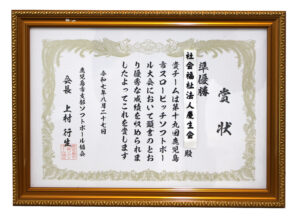 賞状
準優勝
社会福祉法人慶生会 殿
貴チームは第十九回鹿児島
市スローピッチソフトボー
ル大会において頭書のとお
り優秀な成績を収められま
したよってこれを賞します
令和七年八月二十七日
鹿児島市支部ソフトボール協会
会長 上村 行生